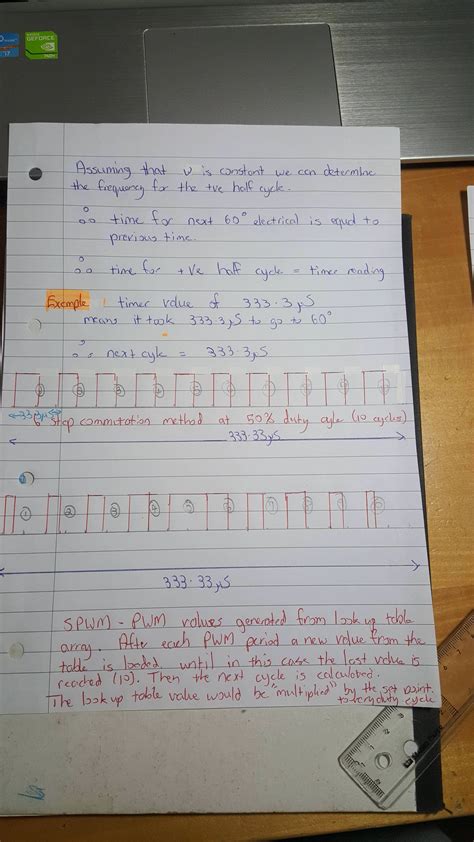 GEFORCE
Assuming that v is constant we can determine
the frequency for the +ve half cycle.
∴ time for next 60° electrical is equal to
previous time.
∴ time for +ve half cycle = timer reading
Example
timer value of 333.3µS
means it took 333.3µS to go to 60°
∴ next cycle = 333.3µS
6 Step commutation method at 50% duty cycle (10 cycles)
333.33µS
① ② ③ ④ ⑤ ⑥ ⑦
333.33µS
SPWM - PWM values generated from look up table
array. After each PWM period a new value from the
table is loaded until in this case the last value is
reached (10). Then the next cycle is calculated.
The look up table value would be "multiplied" by the set point
to vary duty cycle